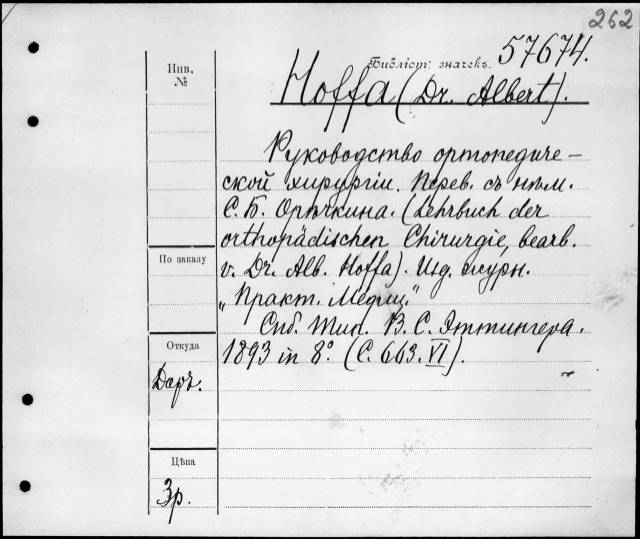 262
57674.
Инв.
№
Библіот. значекъ.
Hoffa (Dr. Albert).
Руководство ортопедиче-
ской хирургіи. Перев. съ нѣм.
С. Б. Орѣчкина. (Lehrbuch der
orthopädischen Chirurgie, bearb.
По заказу
v. Dr. Alb. Hoffa). Изд. журн.
„Практ. Медиц."
Спб. Тип. В. С. Эттингера.
Откуда
1893 in 8º. (С. 663. VI).
Дар.
Цѣна
3р.